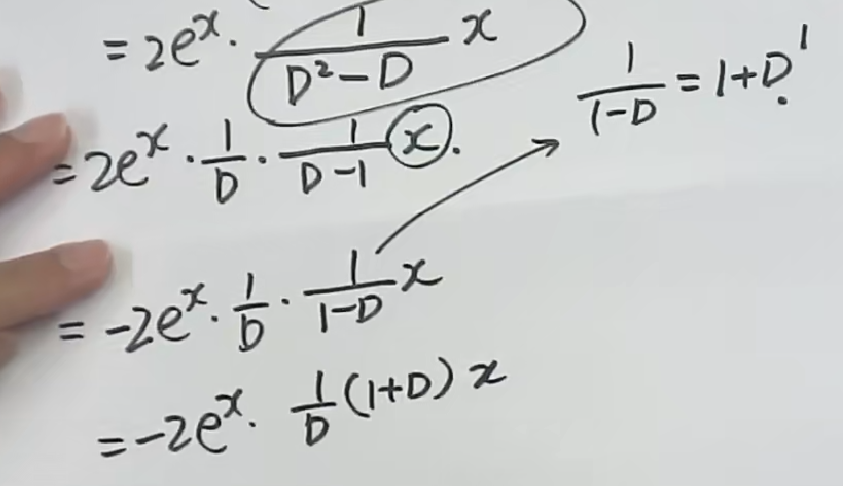 = 2eˣ · 1/(D²−D) x
1/(1−D) = 1+D¹
= 2eˣ · 1/D · 1/(D−1) x.
= −2eˣ · 1/D · 1/(1−D) x
= −2eˣ · 1/D (1+D) x